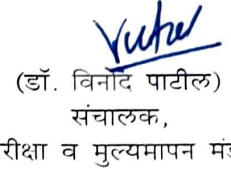 (डॉ. विनोद पाटील)
संचालक,
रीक्षा व मुल्यमापन मं